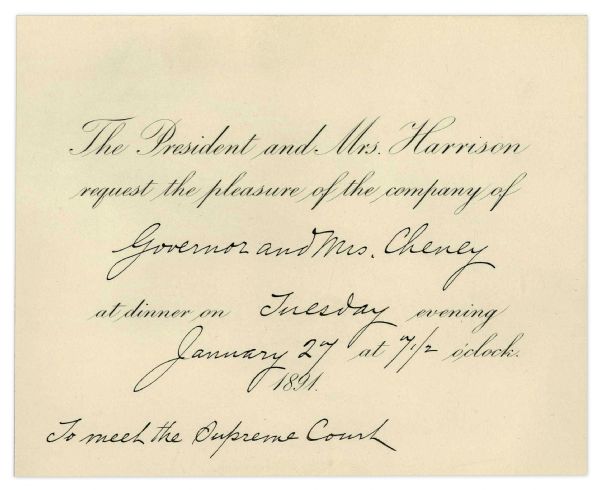 The President and Mrs. Harrison
request the pleasure of the company of
Governor and Mrs. Cheney
at dinner on Tuesday evening
January 27 at 7 1/2 o'clock.
1891.
To meet the Supreme Court